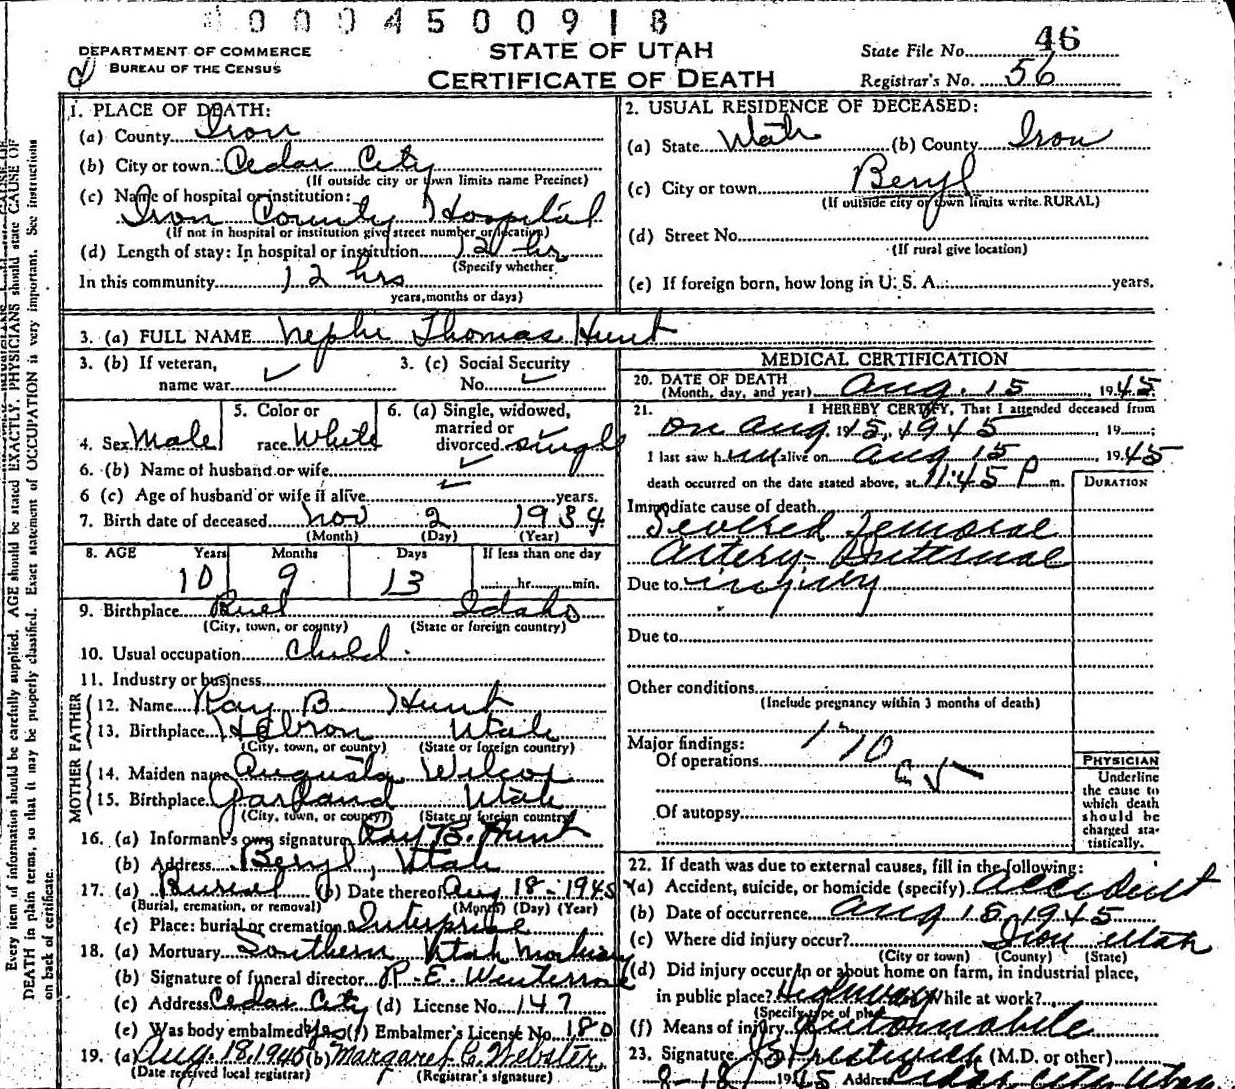 0004500918
DEPARTMENT OF COMMERCE
BUREAU OF THE CENSUS
STATE OF UTAH
CERTIFICATE OF DEATH
State File No. 46
Registrar's No. 56
1. PLACE OF DEATH:
(a) County Iron
(b) City or town Cedar City
(If outside city or town limits name Precinct)
(c) Name of hospital or institution:
Iron County Hospital
(If not in hospital or institution give street number or location)
(d) Length of stay: In hospital or institution 12 hrs
(Specify whether
In this community 12 hrs
years, months or days)
2. USUAL RESIDENCE OF DECEASED:
(a) State Utah (b) County Iron
(c) City or town Beryl
(If outside city or town limits write RURAL)
(d) Street No.
(If rural give location)
(e) If foreign born, how long in U. S. A. years.
3. (a) FULL NAME Nephi Thomas Hunt
3. (b) If veteran, name war ✓
3. (c) Social Security No. ✓
4. Sex Male
5. Color or race White
6. (a) Single, widowed, married or divorced single
6. (b) Name of husband or wife ✓
6 (c) Age of husband or wife if alive ✓ years.
7. Birth date of deceased Nov 2 1934
(Month) (Day) (Year)
8. AGE Years Months Days If less than one day
10 9 13 hr. min.
9. Birthplace Idaho
(City, town, or county) (State or foreign country)
10. Usual occupation Child
11. Industry or business
FATHER
12. Name Ray B. Hunt
13. Birthplace Hebron Utah
(City, town, or county) (State or foreign country)
MOTHER
14. Maiden name Augusta Wilcox
15. Birthplace Garland Utah
(City, town, or county) (State or foreign country)
16. (a) Informant's own signature Ray B. Hunt
(b) Address Beryl, Utah
17. (a) Burial (b) Date thereof Aug 18-1945
(Burial, cremation, or removal) (Month) (Day) (Year)
(c) Place: burial or cremation Enterprise
18. (a) Mortuary Southern Utah Mortuary
(b) Signature of funeral director P. E.
(c) Address Cedar City (d) License No. 147
(e) Was body embalmed Yes (f) Embalmer's License No. 180
19. (a) Aug. 18, 1945 (b) Margaret C. Webster
(Date received local registrar) (Registrar's signature)
MEDICAL CERTIFICATION
20. DATE OF DEATH
(Month, day, and year) Aug. 15, 1945
21. I HEREBY CERTIFY, That I attended deceased from
on Aug. 15, 1945, 19
I last saw him alive on Aug 15 1945
death occurred on the date stated above, at 11:45 P m.
DURATION
Immediate cause of death
Severed femoral
artery - Internal
Due to injury
Due to
Other conditions
(Include pregnancy within 3 months of death)
Major findings:
Of operations
170
Of autopsy
PHYSICIAN
Underline
the cause to
which death
should be
charged sta-
tistically.
22. If death was due to external causes, fill in the following:
(a) Accident, suicide, or homicide (specify) Accident
(b) Date of occurrence Aug 15, 1945
(c) Where did injury occur? Iron Utah
(City or town) (County) (State)
(d) Did injury occur in or about home on farm, in industrial place,
in public place? Highway While at work?
(Specify type of place)
(f) Means of injury automobile
23. Signature (M.D. or other)
8-18 1945 Address Cedar City Utah
Every item of information should be carefully supplied. AGE should be stated EXACTLY. PHYSICIANS should state CAUSE OF
DEATH in plain terms, so that it may be properly classified. Exact statement of OCCUPATION is very important. See instructions
on back of certificate.